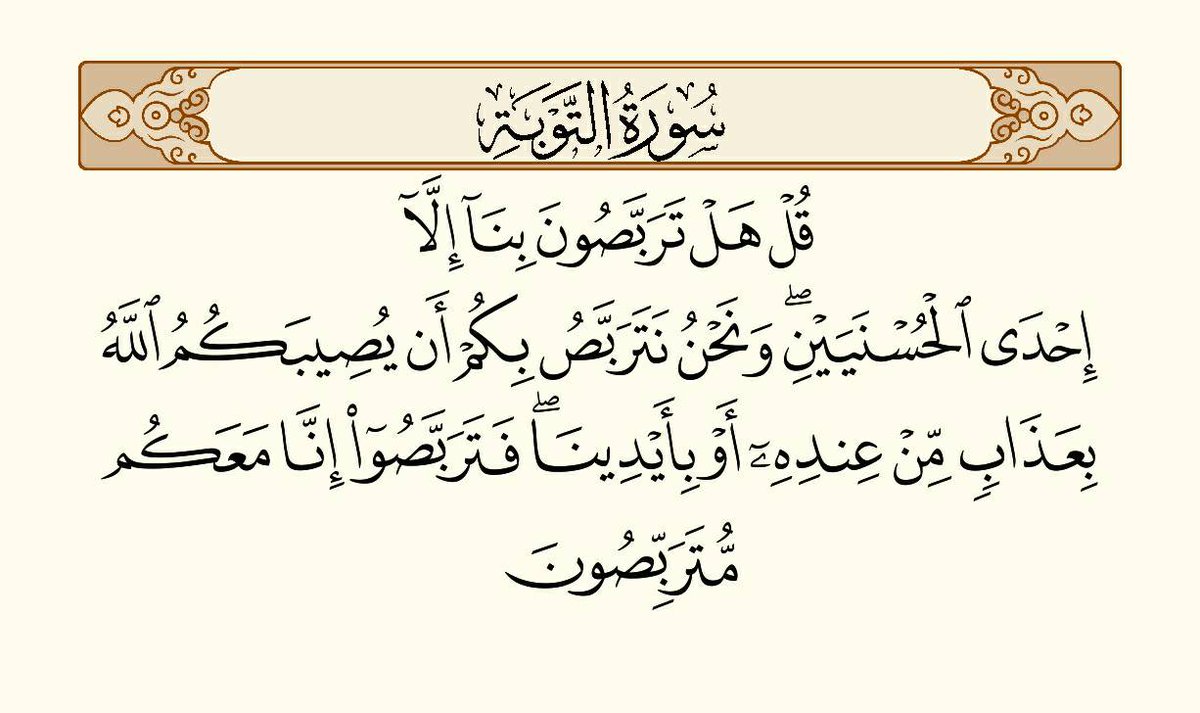 سُورَةُ التَّوۡبَةِ
قُلۡ هَلۡ تَرَبَّصُونَ بِنَآ إِلَّآ
إِحۡدَى ٱلۡحُسۡنَيَيۡنِۖ وَنَحۡنُ نَتَرَبَّصُ بِكُمۡ أَن يُصِيبَكُمُ ٱللَّهُ
بِعَذَابٖ مِّنۡ عِندِهِۦٓ أَوۡ بِأَيۡدِينَاۖ فَتَرَبَّصُوٓاْ إِنَّا مَعَكُم
مُّتَرَبِّصُونَ